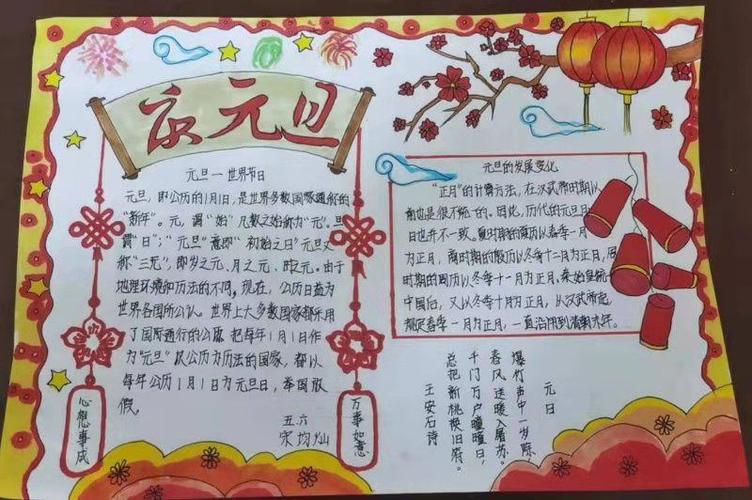 庆元旦
元旦一世界节日
元旦，即公历的1月1日，是世界多数国家通称的
"新年"。元，谓"始"凡数之始称为"元"。旦
谓"日"；"元旦"意即"初始之日"元旦又
称"三元"，即岁之元、月之元、时之元。由于
地理环境和历法的不同，现在，公历日益为
世界各国所公认。世界上大多数国家都采用
了国际通行的公历 把每年1月1日作
为"元旦"以公历为历法的国家，都以
每年公历1月1日为元旦日，举国放
假。
五六
宋均灿
心想事成
万事如意
元旦的发展变化
"正月"的计算方法，在汉武帝时期以
前也是很不统一的。因此，历代的元旦月
日也并不一致。夏时期的夏历以春季一月
为正月，商时期的殷历以冬季十二月为正月，周
时期的周历以冬季十一月为正月，秦始皇统一
中国后，又以冬季十月为正月，从汉武帝起，
规定春季一月为正月，一直沿用到清朝末年。
元日
爆竹声中一岁除，
春风送暖入屠苏。
千门万户曈曈日，
总把新桃换旧符。
王安石诗